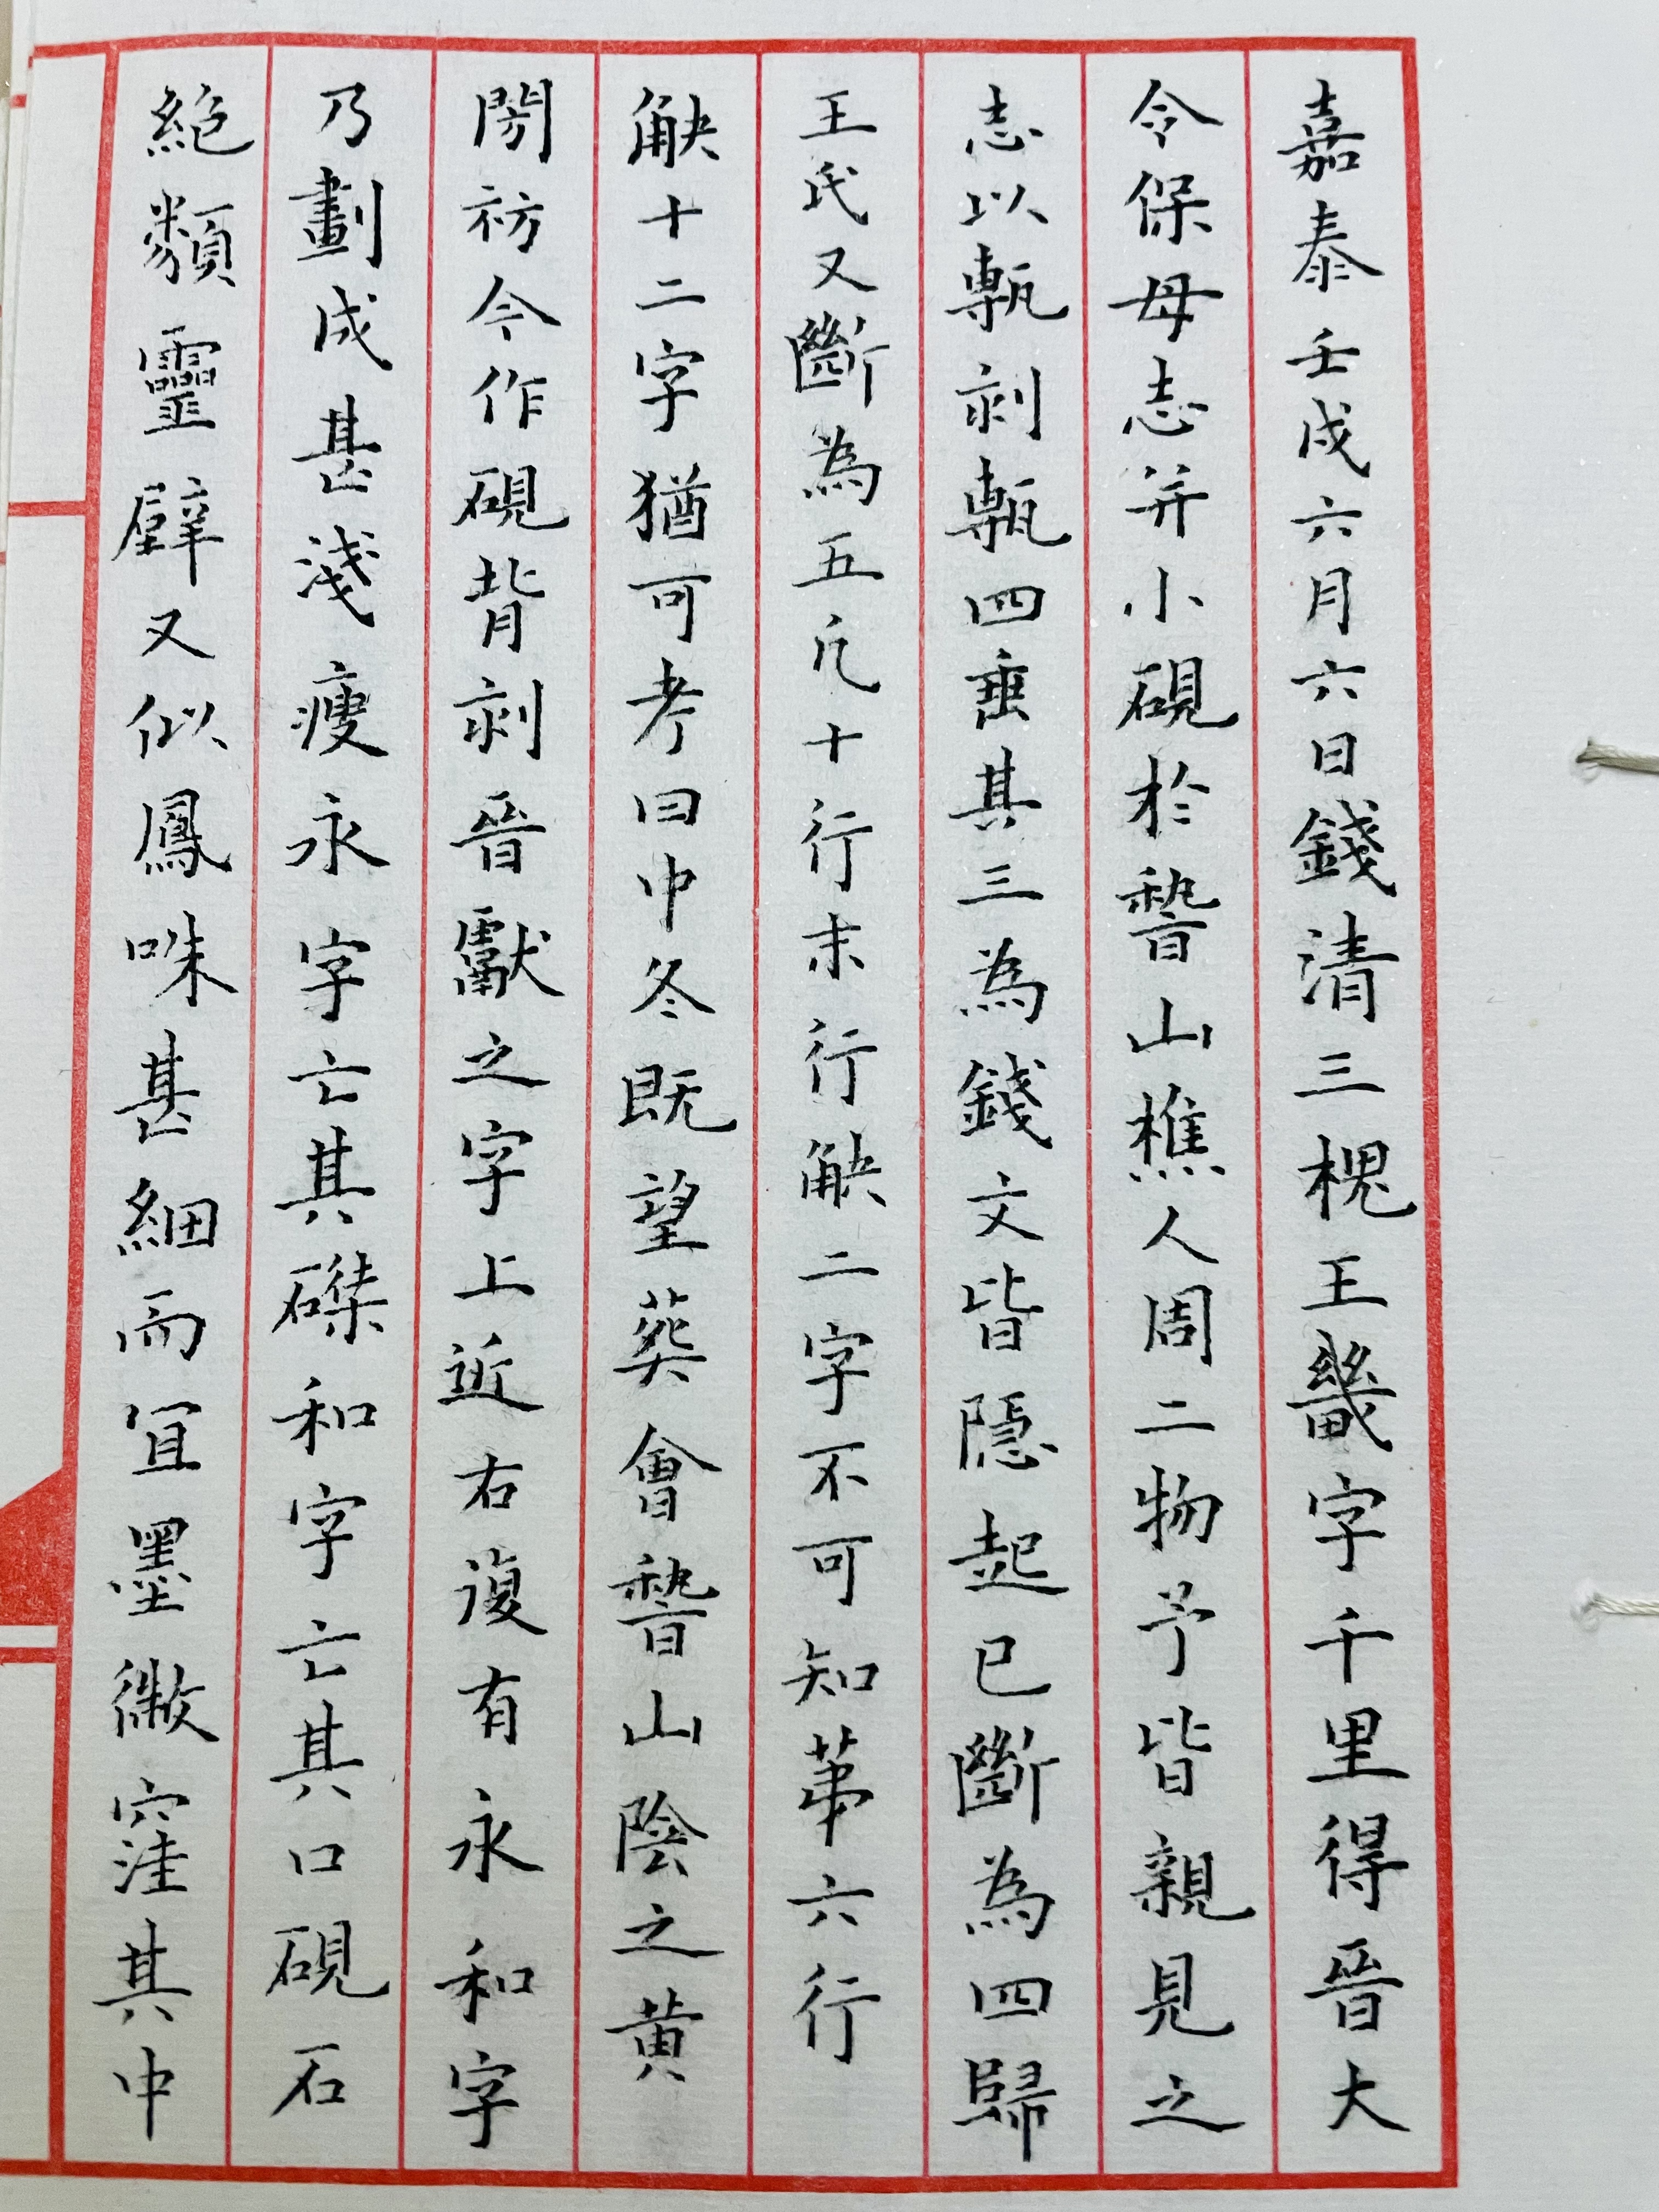 嘉泰壬戌六月六日錢清三槐王畿字千里得晉大
令保母志并小硯於嵇山樵人周二物予皆親見之
志以甎刻甎四垂其三為錢文皆隱起已斷為四歸
王氏又斷為五凡十行末行缺二字不可知苐六行
缺十二字猶可考曰中冬既望葬會嵇山陰之黃
閍祊今作硯背刻晉獻之字上近右復有永和字
乃劃成甚淺瘦永字亡其磔和字亡其口硯石
絕類靈壁又似鳳咮甚細而宜墨微窪其中